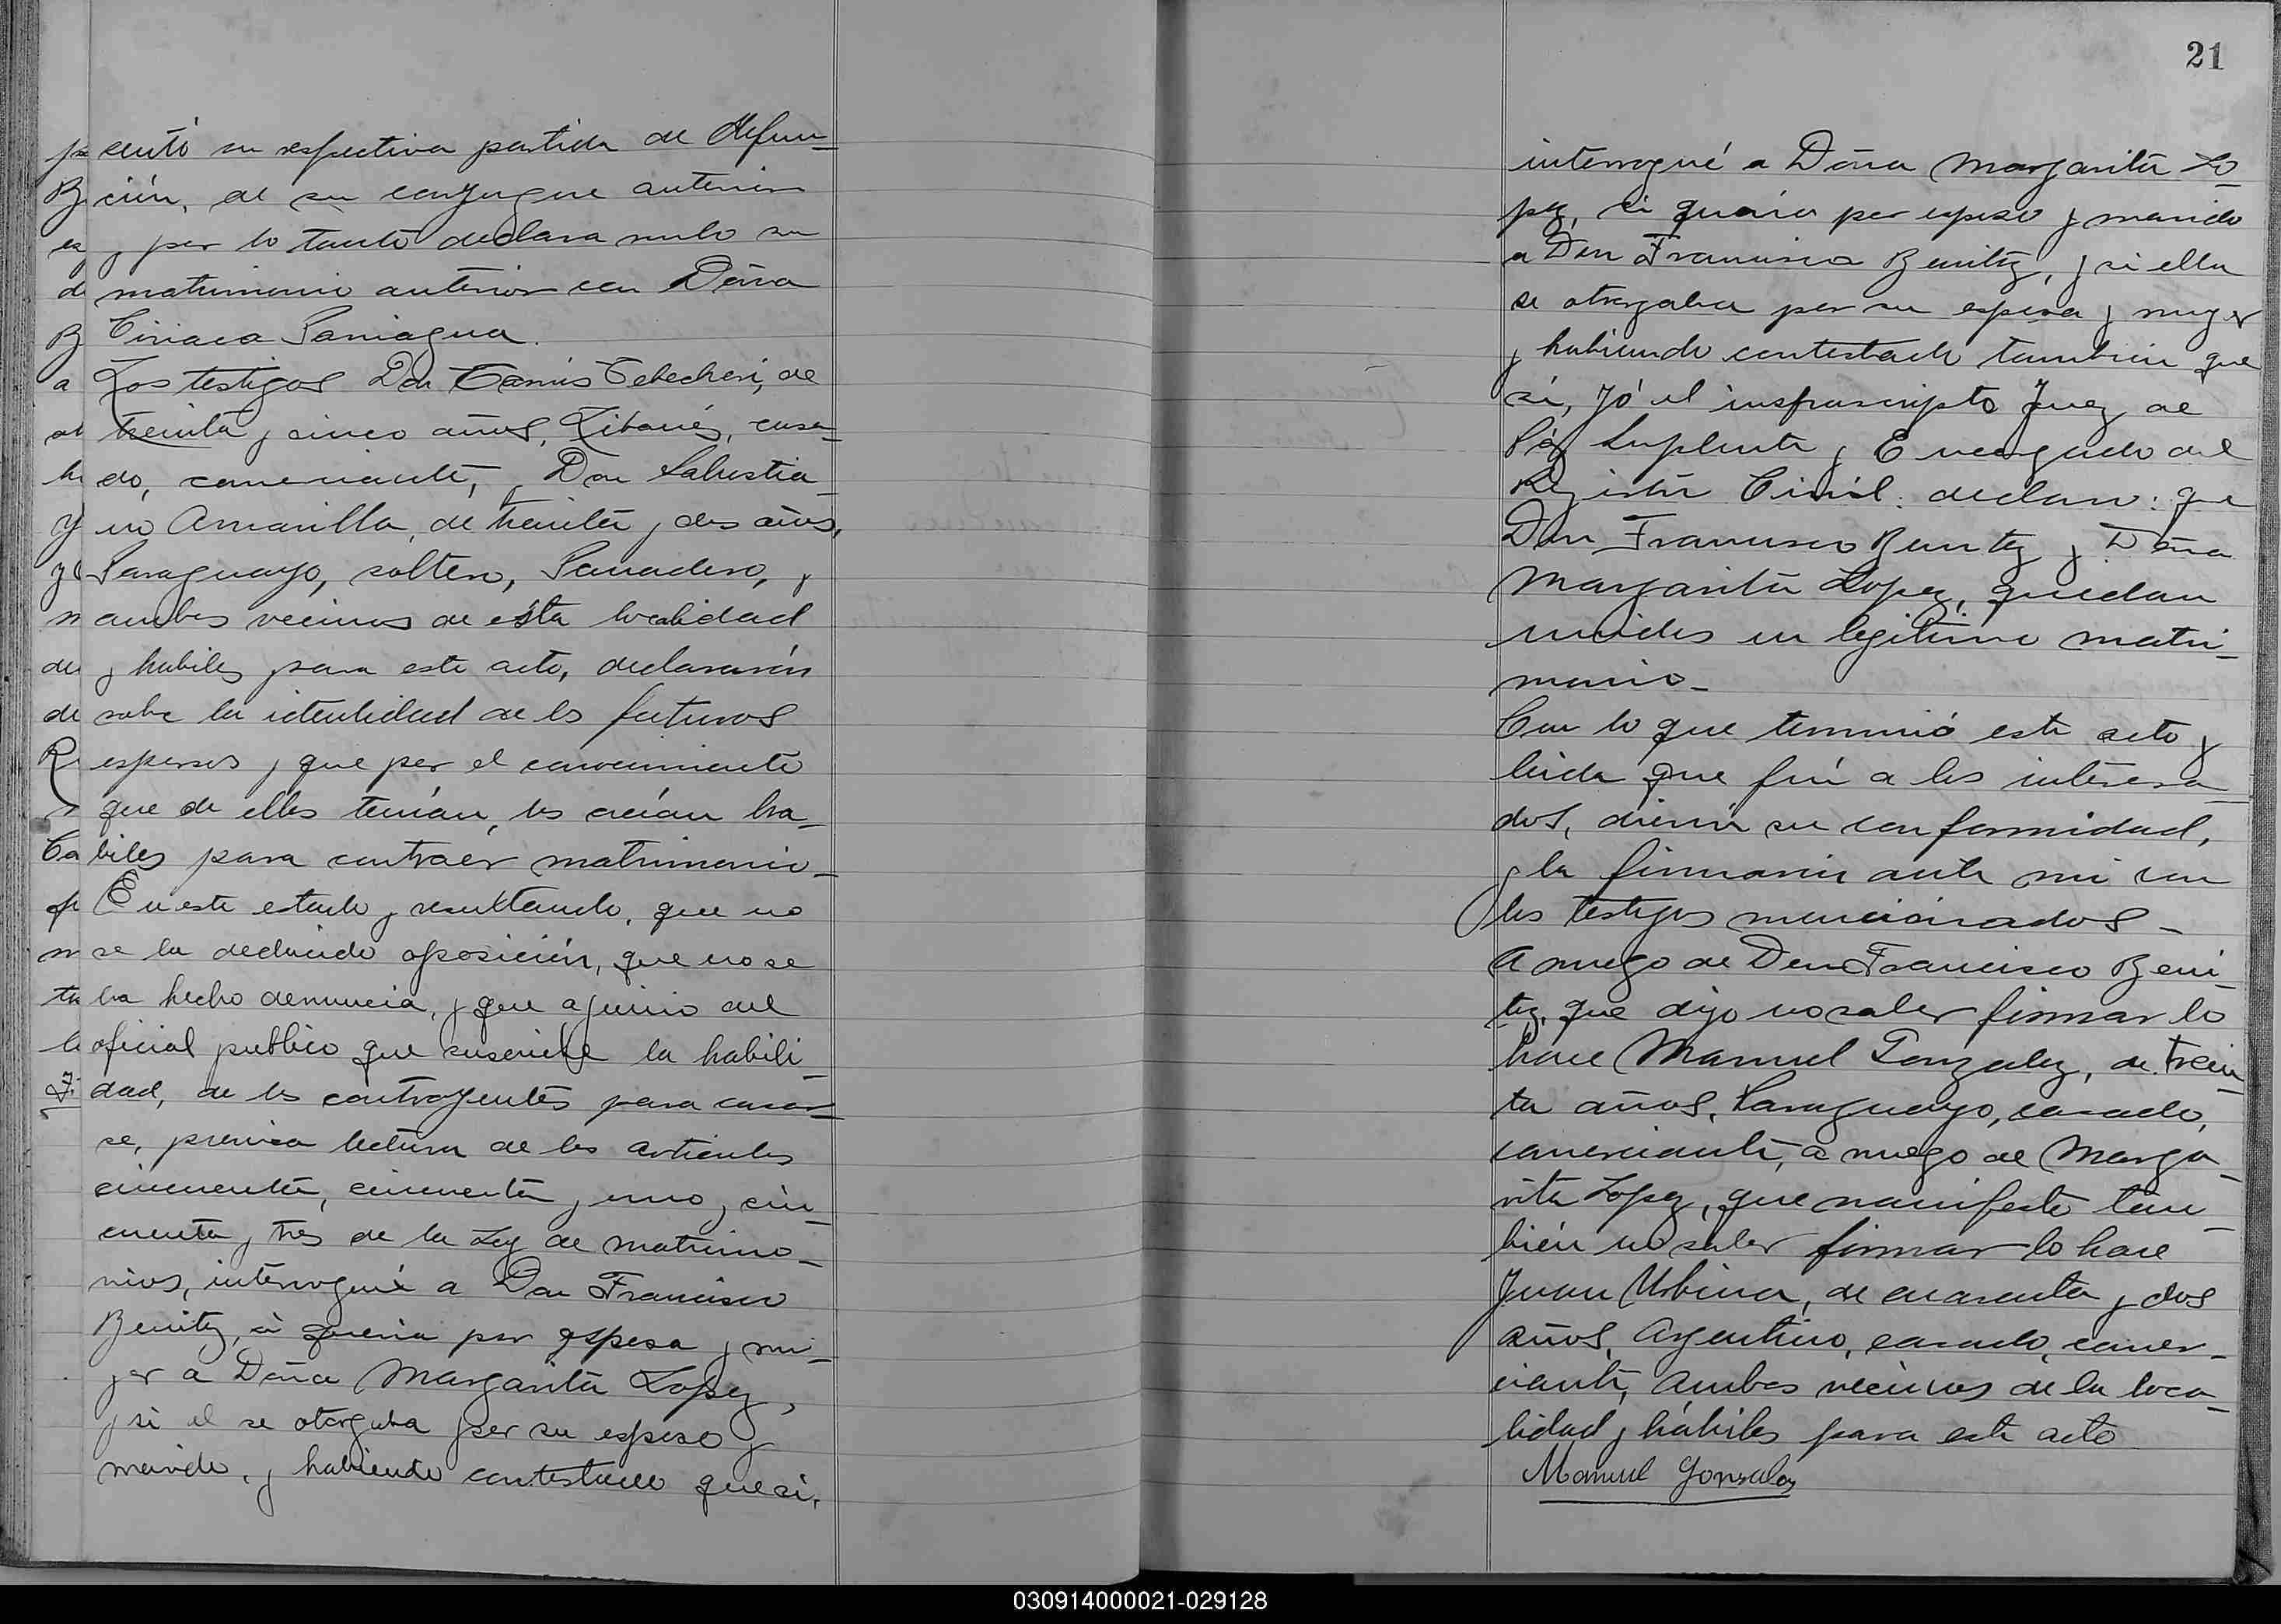 sentó su respectiva partida de defun-
ción, de su conyugue anterior
y por lo tanto declara nulo su
matrimonio anterior con Doña
Ciriaca Paniagua.
Los testigos Don Tebecheri, de
treinta y cinco años, Libanés, casa-
do, comerciante, y Don Salustia-
no Amarilla, de treinta y dos años,
Paraguayo, soltero, Panadero, y
ambos vecinos de esta localidad
y habiles para este acto, declararón
sobre la identidad de los futuros
esposos y que por el conocimiento
que de ellos tenían, los creían ha-
biles para contraer matrimonio-
En este estado y resultando, que no
se ha deducido oposición, que no se
ha hecho denuncia, y que a juicio del
oficial publico que suscribe la habili-
dad, de los contrayentes para casar-
se, previa lectura de los articulos
cincuenta, cincuenta y uno y cin-
cuenta y tres de la Ley de matrimo-
nios, interrogué a Don Francisco
Benitez, si queria por esposa y mu-
jer a Doña Margarita Lopez,
y si el se otorgaba por su esposo y
marido, y habiendo contestado que si,
21
interrogué a Doña Margarita Lo-
pez, si quería por esposo y marido
a Don Francisco Benitez, y si ella
se otorgaba por su esposa y muger
y habiendo contestado tambien que
sí, Yó el infrascripto Juez de
Páz Suplente y Encargado del
Registro Civíl: declaro: que
Don Francisco Benitez y Doña
Margarita Lopez, quedan
unidos en legitimo matri-
monio-
Con lo que terminó este acto y
leida que fué a los interesa-
dos, dierón su conformidad,
y la firmarón ante mi con
los testigos mencionados-
A ruego de Don Francisco Beni-
tez, que dijo no saber firmar lo
hace Manuel Gonzalez, de trein-
ta años, Paraguayo, casado,
comerciante, a ruego de Marga-
rita Lopez, que manifesto tam-
bién no saber firmar lo hace
Juan Urbina, de cuarenta y dos
años, Argentino, casado, comer-
ciante, ambos vecinos de la loca-
lidad y hábiles para este acto
Manuel Gonzalez
030914000021-029128